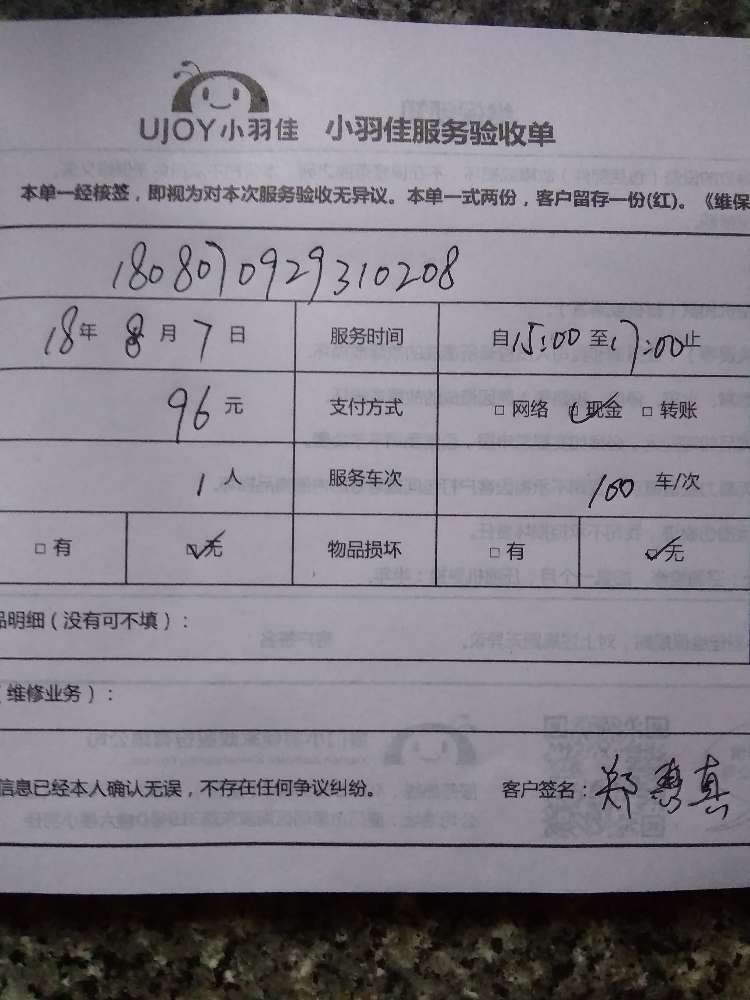 UJOY小羽佳 小羽佳服务验收单
本单一经核签，即视为对本次服务验收无异议。本单一式两份，客户留存一份(红)。《维保
1808070929310208
18年 8月 7日 服务时间 自15:00至17:00止
96元 支付方式 □网络 ☑现金 □转账
1人 服务车次 100车/次
□有 ☑无 物品损坏 □有 ☑无
品明细（没有可不填）：
（维修业务）：
信息已经本人确认无误，不存在任何争议纠纷。 客户签名：郑惠真